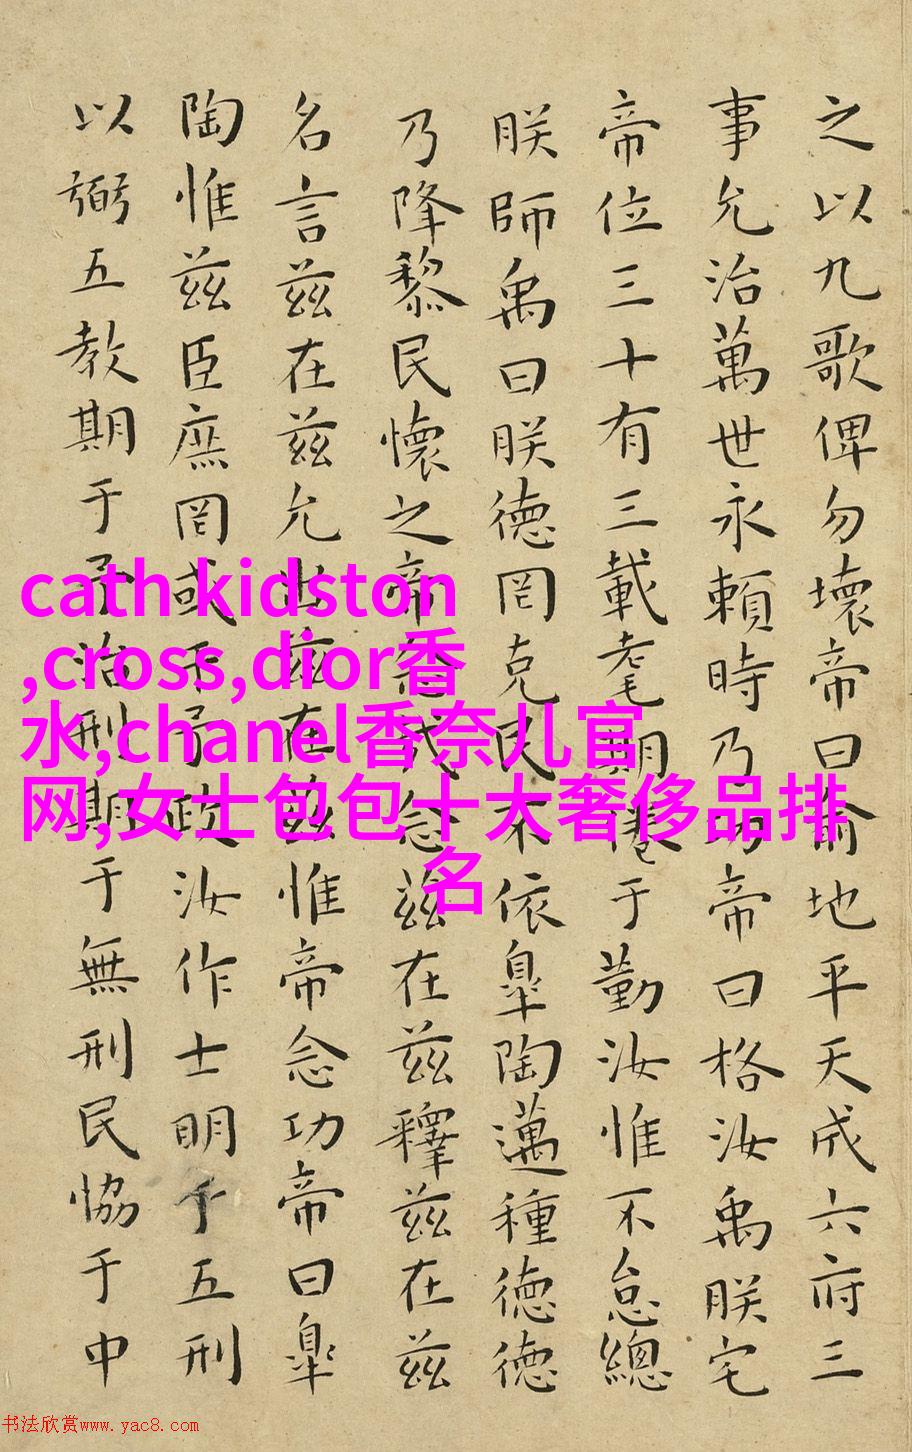 之以九歌俾勿壞帝曰俞地平天成六府三
事允治萬世永頼時乃功帝曰格汝禹朕宅
帝位三十有三載耄期倦于勤汝惟不怠總
朕師禹曰朕德罔克民不依皐陶邁種德德
乃降黎民懷之帝念哉念兹在兹釋兹在兹
名言兹在兹允出兹在兹惟帝念功帝曰皐
陶惟兹臣庶罔或干予政汝作士明于五刑
以弼五教期于予治刑期于無刑民恊于中
cath kidston
,cross,dior香
水,chanel香奈儿官
网,女士包包十大奢侈品排
名
书法欣赏www.yac8.com